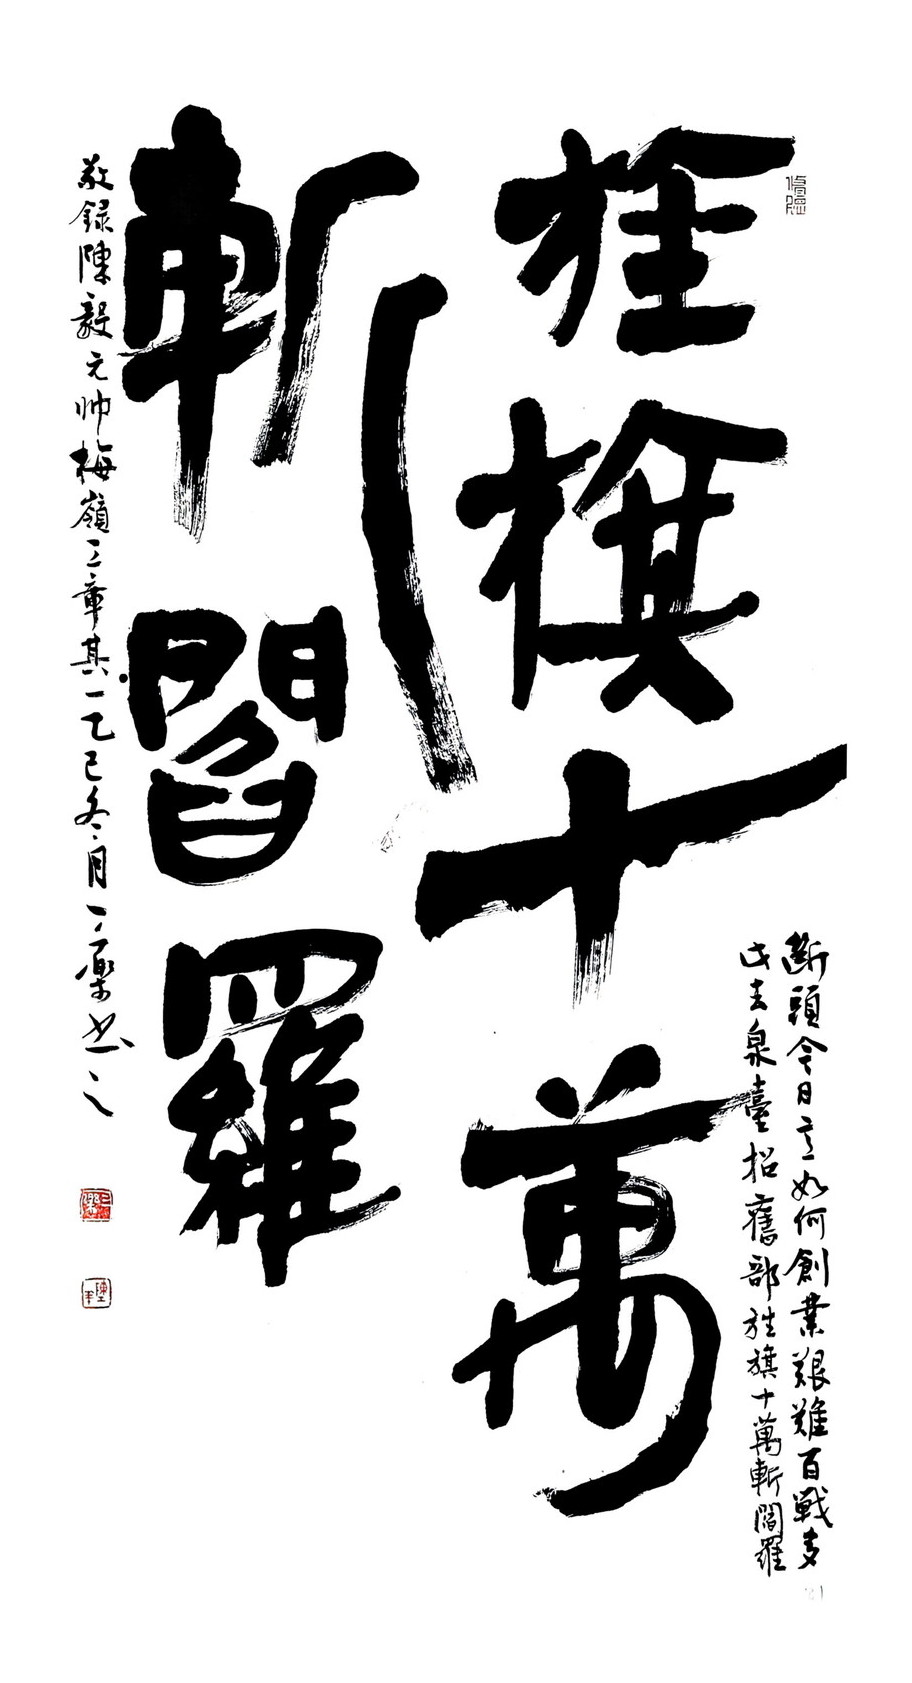 旌旗十萬
斬閻羅
斷頭今日意如何創業艱難百戦多
此去泉臺招舊部旌旗十萬斬閻羅
敬録陳毅元帅梅嶺三章其一乙巳冬月书之